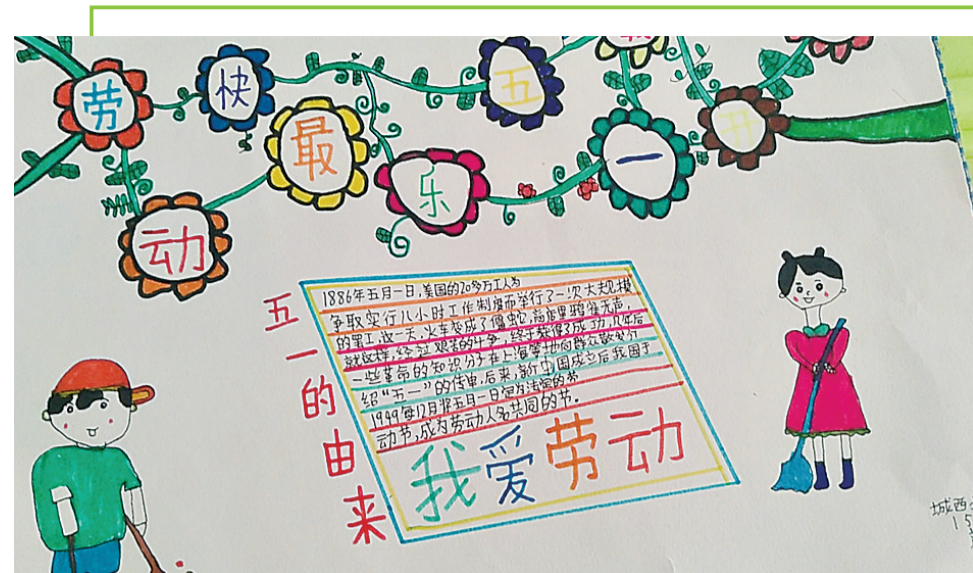 劳
快
五
最
乐
一
动
五一的由来
1886年五月一日,美国的20多万工人为
争取实行八小时工作制度而举行了一次大规模
的罢工,这一天,火车变成了僵蛇,商店里鸦雀无声,
就这样,经过艰苦的斗争,终于获得了成功,几年后
一些革命的知识分子在上海等地向群众散发介
绍“五一”的传单,后来,新中国成立后我国于
1949年12月将五月一日定为法定的劳
动节,成为劳动人名共同的节。
我爱劳动
城西
15